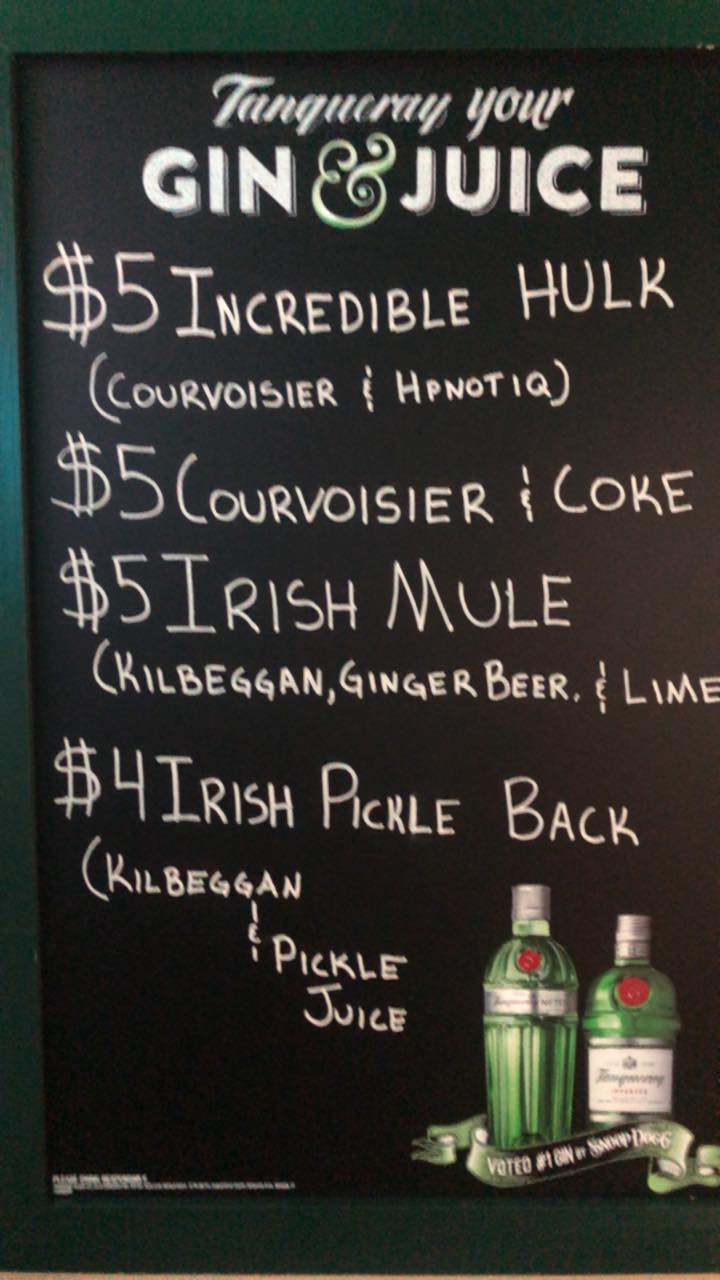 Tanqueray your
GIN & JUICE
$5 INCREDIBLE HULK
(COURVOISIER & HPNOTIQ)
$5 COURVOISIER & COKE
$5 IRISH MULE
(KILBEGGAN, GINGER BEER, & LIME
$4 IRISH PICKLE BACK
(KILBEGGAN
& PICKLE
JUICE
Tanqueray
Tanqueray
IMPORTED
VOTED #1 GIN BY SNOOP DOGG
PLEASE DRINK RESPONSIBLY.